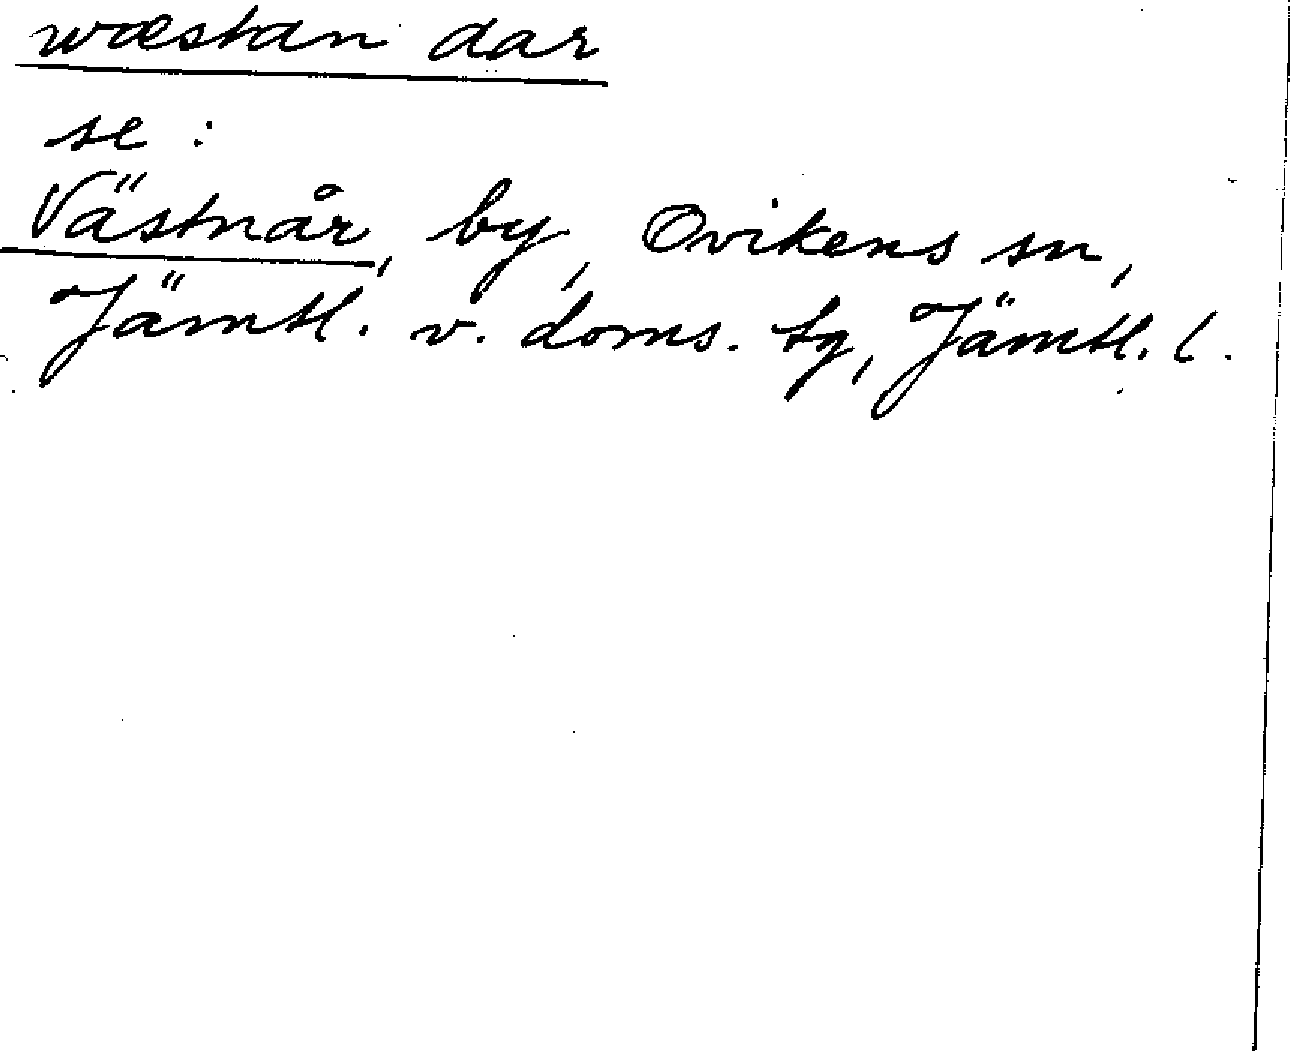 wæstan dar
se :
Västnår, by, Ovikens sn,
Jämtl. v. doms. tg, Jämtl. l.